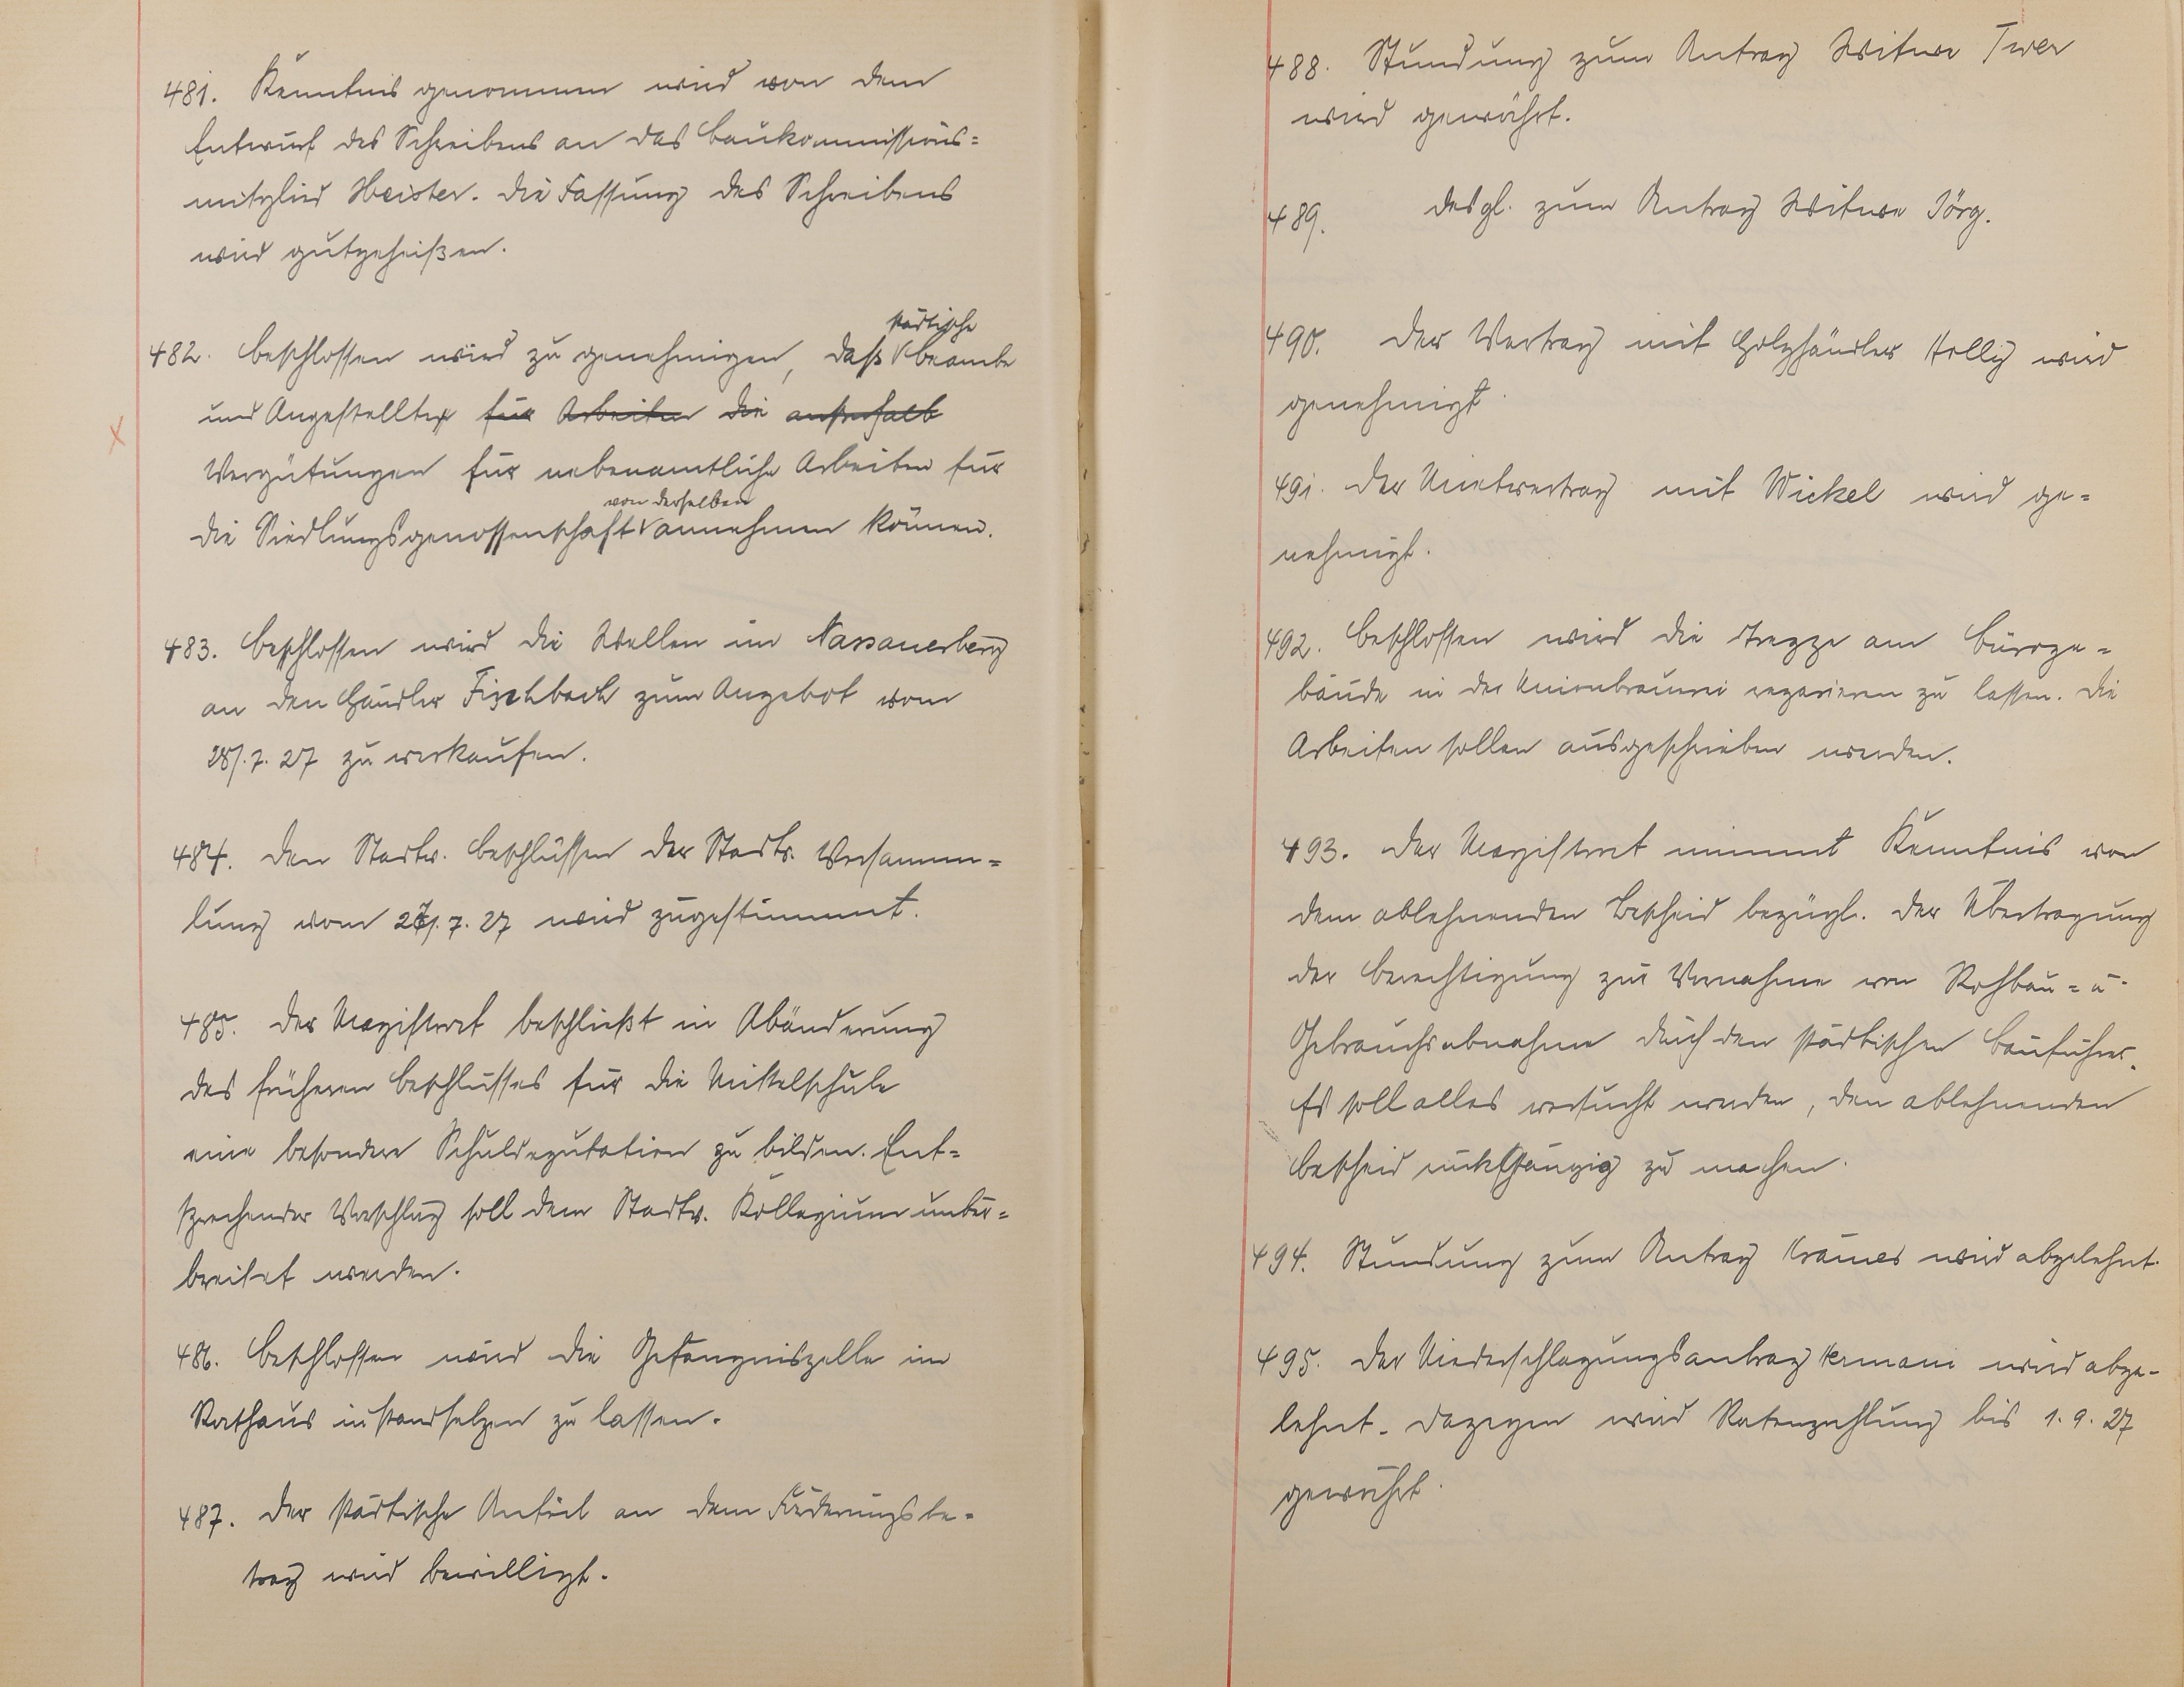 481. Kenntnis genommen wird von dem
Entwurf des Schreibens an das Baukommissions=
mitglied Heister. Die Fassung des Schreibens
wird gutgeheißen.
städtische
482. Beschlossen wird zu genehmigen, daß Beamte
und Angestellte für Arbeiten die außerhalb
Vergütungen für nebenamtliche Arbeiten für
von derselben
die Siedlungsgenossenschaft annehmen können.
483. Beschlossen wird die Wellen im Nassauerberg
an den Händler Fischbach zum Angebot vom
28/.7.27 zu verkaufen.
484. Den Stadtv. Beschlüssen der Stadtv. Versamm=
lung vom 7.27 wird zugestimmt.
485. Der Magistrat beschließt in Abänderung
des früheren Beschlusses für die Mittelschule
eine besondere Schuldeputation zu bilden. Ent=
sprechender Vorschlag soll dem Stadtv. Kollegium unter=
breitet werden.
486. Beschlossen wird die Gefängniszelle im
Rathaus instandsetzen zu lassen.
487. Der städtische Anteil an dem Förderungsbe=
trag wird bewilligt.
488. Stundung zum Antrag Witwe
wird gewährt.
489. desgl. zum Antrag Witwe Jörg.
490. Der Vertrag mit Holzhändler Helly wird
genehmigt.
491. Der Mietvertrag mit Wickel wird ge=
nehmigt.
492. Beschlossen wird die Treppe am Büroge=
bäude in der Unionbrauerei reparieren zu lassen. Die
Arbeiten sollen ausgeschrieben werden.
493. Der Magistrat nimmt Kenntnis von
dem ablehnenden Bescheid bezügl. der Übertragung
der Berechtigung zur Vornahme von Rohbau= u.
Gebrauchsabnahme durch den städtischen Bauführer.
Es soll alles versucht werden, den ablehnenden
Bescheid rückgängig zu machen.
494. Stundung zum Antrag Krämer wird abgelehnt.
495. Der Niederschlagungsantrag Hermani wird abge=
lehnt. Dagegen wird Ratenzahlung bis 1.9.27
gewährt.